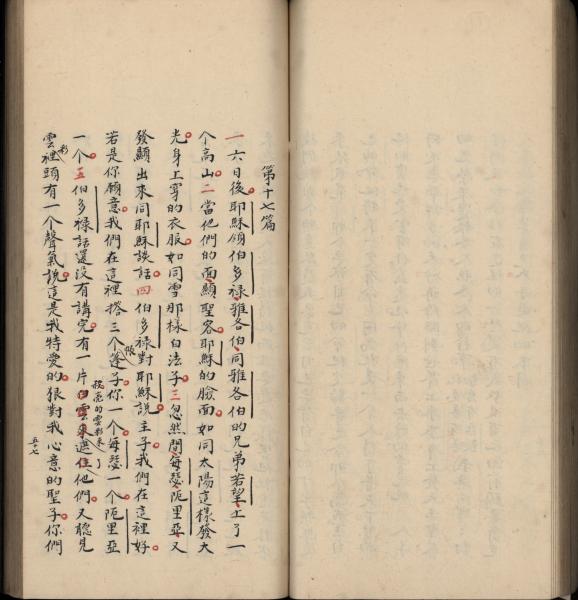 第十七篇
一六日後耶穌領伯多祿雅各伯同雅各伯的兄弟若望上了一
个高山二當他們的面顯聖容耶穌的臉面如同太陽這樣發大
光身上穿的衣服如同雪那樣白法子三忽然間每瑟阨里亞又
發顯出來同耶穌談話四伯多祿對耶穌說主子我們在這裡好
若是你願意我們在這裡搭三个篷子你一个每瑟一个阨里亞
帳
一个五伯多祿話還沒有講完有一片白雲來遮住他們又聽見
亮的雲彩來了
雲裡頭有一个聲氣說這是我特愛的狠對我心意的聖子你們
彩
五十七